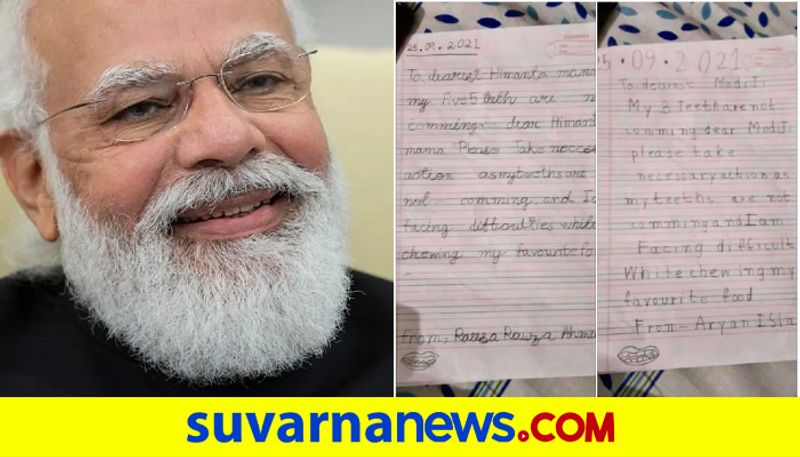 25.09.2021
To dearest Himanta mama
my five5 teeth are n
comming dear Himant
mama Please Take necess
action as my tooths are
not comming and I a
facing difficulties while
chewing my favourite fo
From, Raeesa Rawza Ahme
5.09.2021
To dearest ModiJi
My 3 Teeth are not
comming dear ModiJi
please take
necessary action as
my teeths are not
comming and I am
Facing difficult
While chewing my
favourite food
From- Aryan ISla
suvarnanews.COM